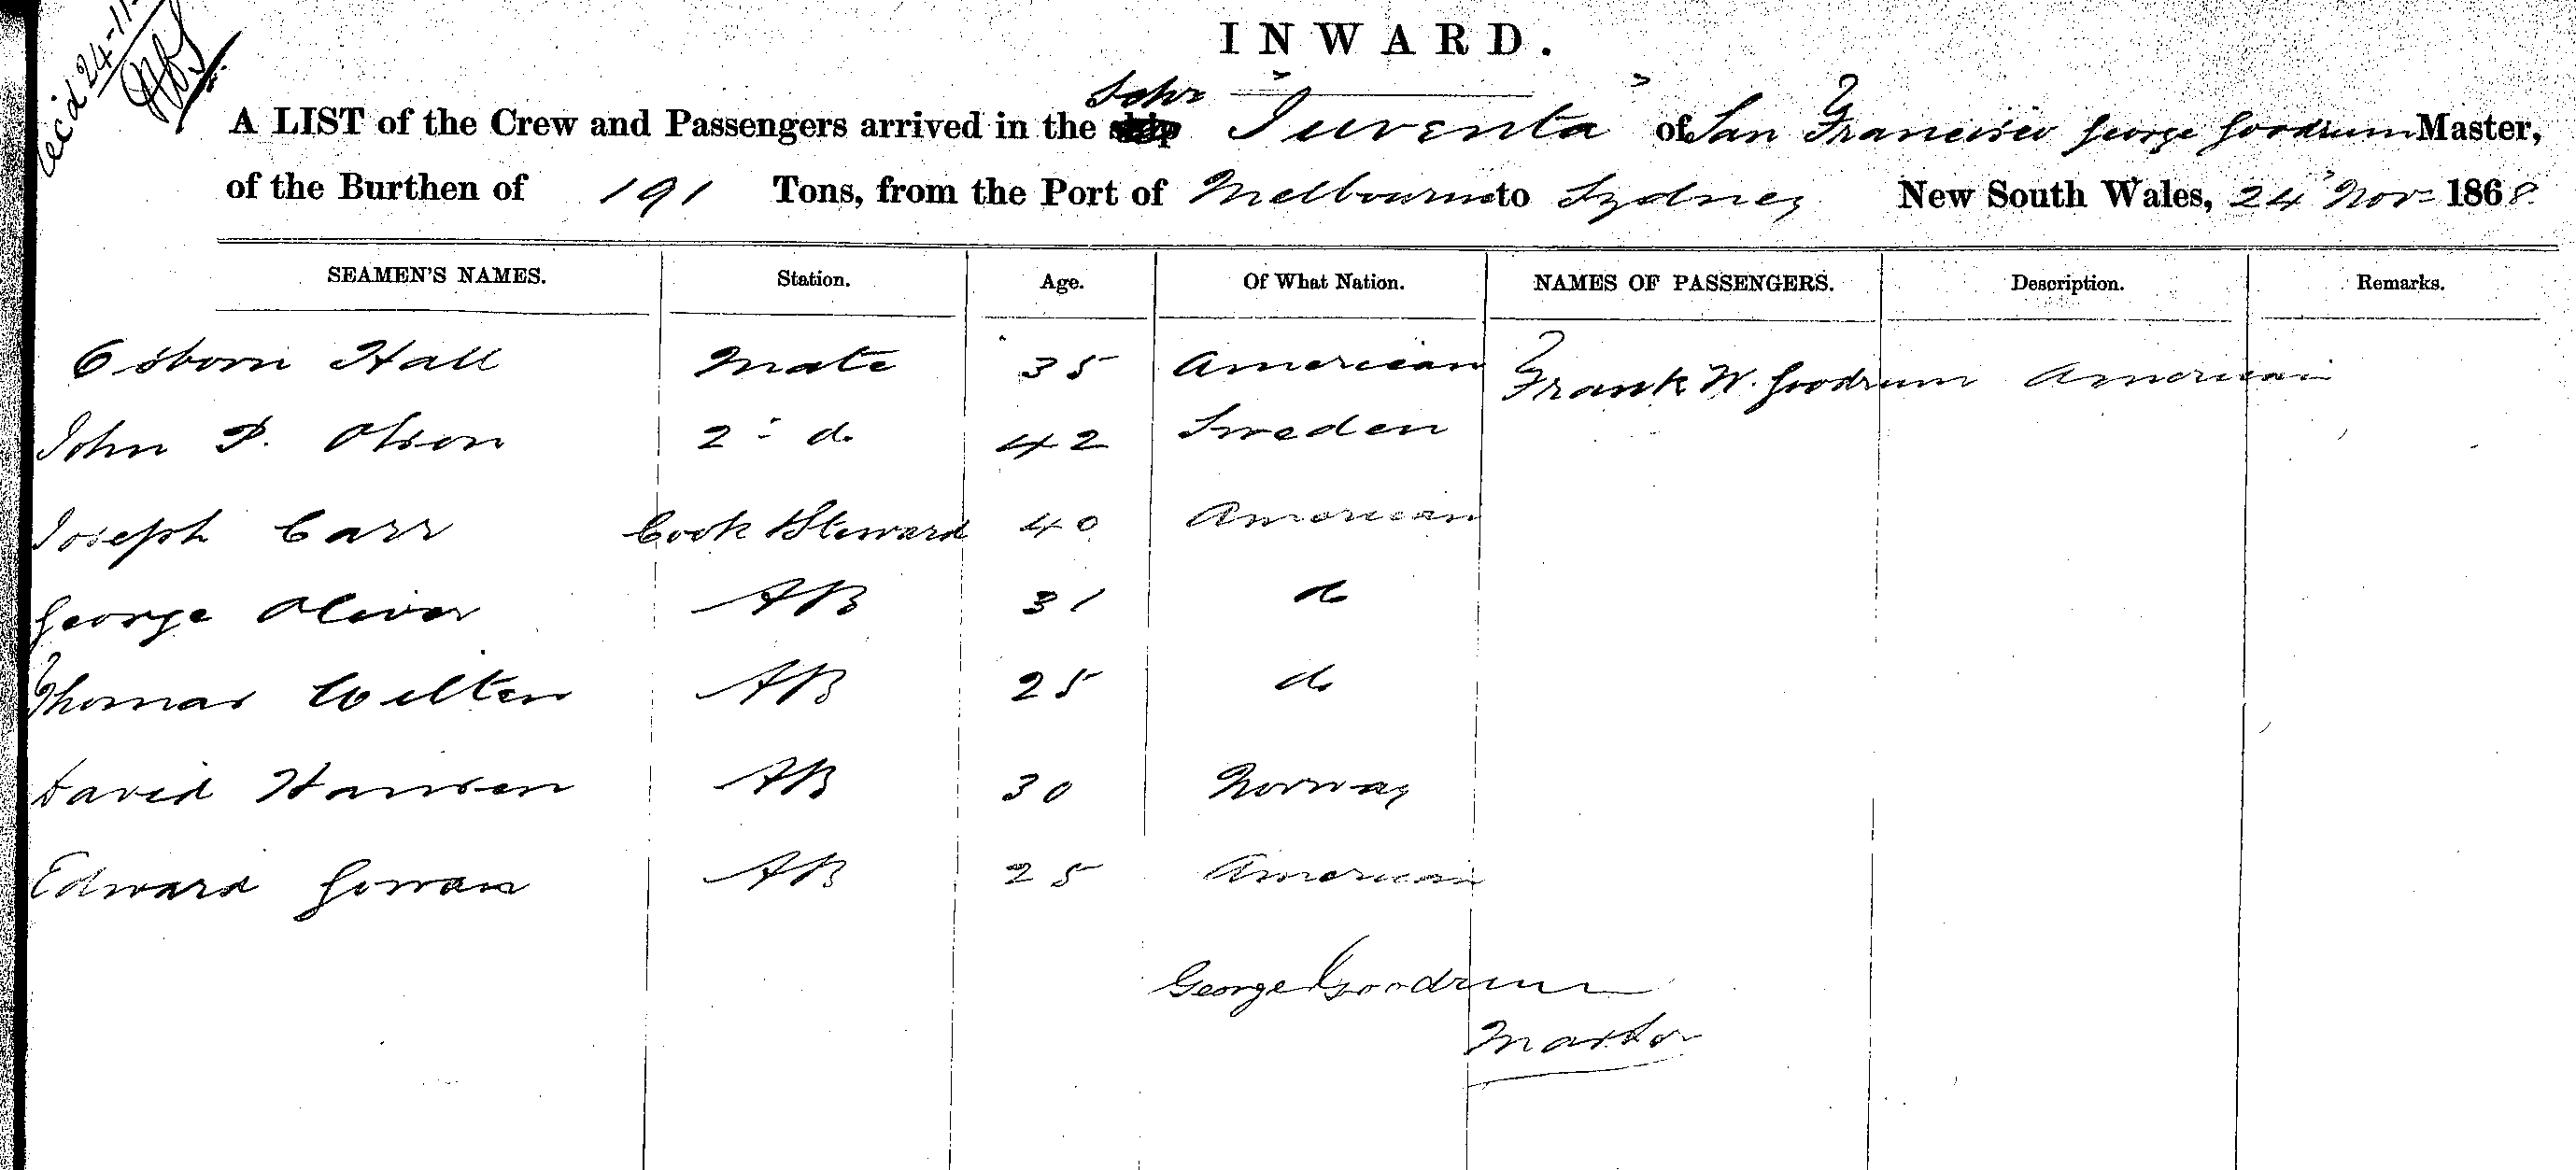 Rec'd 24-11-
INWARD.
Schr
A LIST of the Crew and Passengers arrived in the ship "Juventa" of San Francisco George Goodrum Master,
of the Burthen of 191 Tons, from the Port of Melbourne to Sydney New South Wales, 24 Nov 1868
SEAMEN'S NAMES. Station. Age. Of What Nation. NAMES OF PASSENGERS. Description. Remarks.
Osborn Hall Mate 35 American Frank W. Goodrum American
John P. Olson 2 - do 42 Sweden
Joseph Carr Cook & Steward 40 American
George Oliver AB 31 do
Thomas Wilten AB 25 do
David Hansen AB 30 Norway
Edward Gowan AB 25 American
George Goodrum
Master